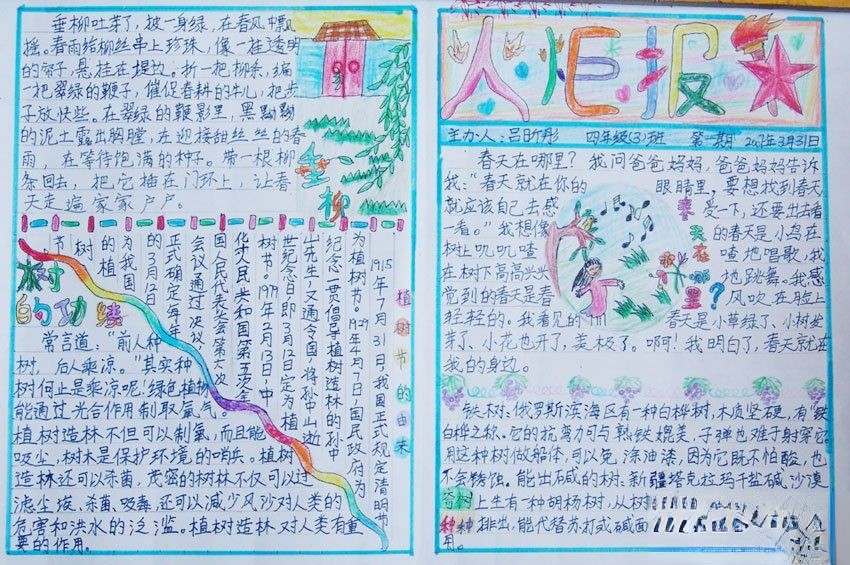 垂柳吐芽了，披一身绿，在春风中飘
摇。春雨给柳丝串上珍珠，像一挂透明
的帘子，悬挂在堤边。折一把柳条，编
一把翠绿的鞭子，催促春耕的牛儿，把步
子放快些。在翠绿的鞭影里，黑黝黝
的泥土露出胸膛，在迎接甜丝丝的春
雨，在等待饱满的种子。带一根柳
条回去，把它插在门环上，让春
天走遍家家户户。
垂柳
植树节的由来
1915年7月31日，我国正式规定清明节
为植树节。1929年4月7日国民政府为
纪念一贯倡导植树造林的孙中
山先生，又通令全国，将孙中山逝
世纪念日即3月12日定为植
树节。1979年2月13日中
华人民共和国第五次全
国人民代表大会第六次
会议通过决议，
正式确定每年
的3月12日
为我国
的植
树
节
树的功绩
常言道："前人种
树，后人乘凉。"其实种
树何止是乘凉呢！绿色植物
能通过光合作用制取氧气。
植树造林不但可以制氧，而且能
吸尘，树木是保护环境的哨兵。植树
造林还可以杀菌，茂盛的树林不仅可以过
滤尘埃、杀菌、吸毒，还可以减少风沙对人类的
危害和洪水的泛滥。植树造林对人类有重
要的作用。
火炬报
主办人：吕昕彤 四年级(3)班 第一期 2007年3月31日
春天在哪里?
春天在哪里？我问爸爸妈妈，爸爸妈妈告诉
我："春天就在你的眼睛里，要想找到春天
就应该自己去感受一下，还要出去看
一看。"我想像的春天是小鸟在
树上叽叽喳喳地唱歌，我
在树下高高兴兴地跳舞。我感
觉到的春天是春风吹在脸上
轻轻的。我看见的春天是小草绿了、小树发
芽了、小花也开了，美极了。啊！我明白了，春天就在
我的身边。
铁树：俄罗斯滨海区有一种白桦树，木质坚硬，有"铁
白桦之称。它的抗弯力可与熟铁媲美，子弹也难于射穿它。
用这种树做船体，可以免涂油漆，因为它既不怕酸，也
不会锈蚀。能出碱的树：新疆塔克拉玛干盐碱沙漠
上生有一种胡杨树，从树
排出，能代替苏打或碱面
用。
奇树种种